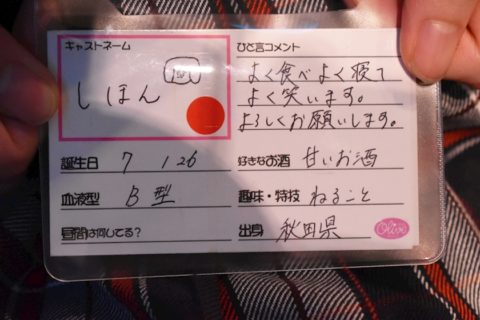 キャストネーム
しほん
ひと言コメント
よく食べよく寝て
よく笑います。
よろしくお願いします。
誕生日 7 / 26
好きなお酒 甘いお酒
血液型 B型
趣味・特技 ねること
昼間は何してる?
出身 秋田県
Olive